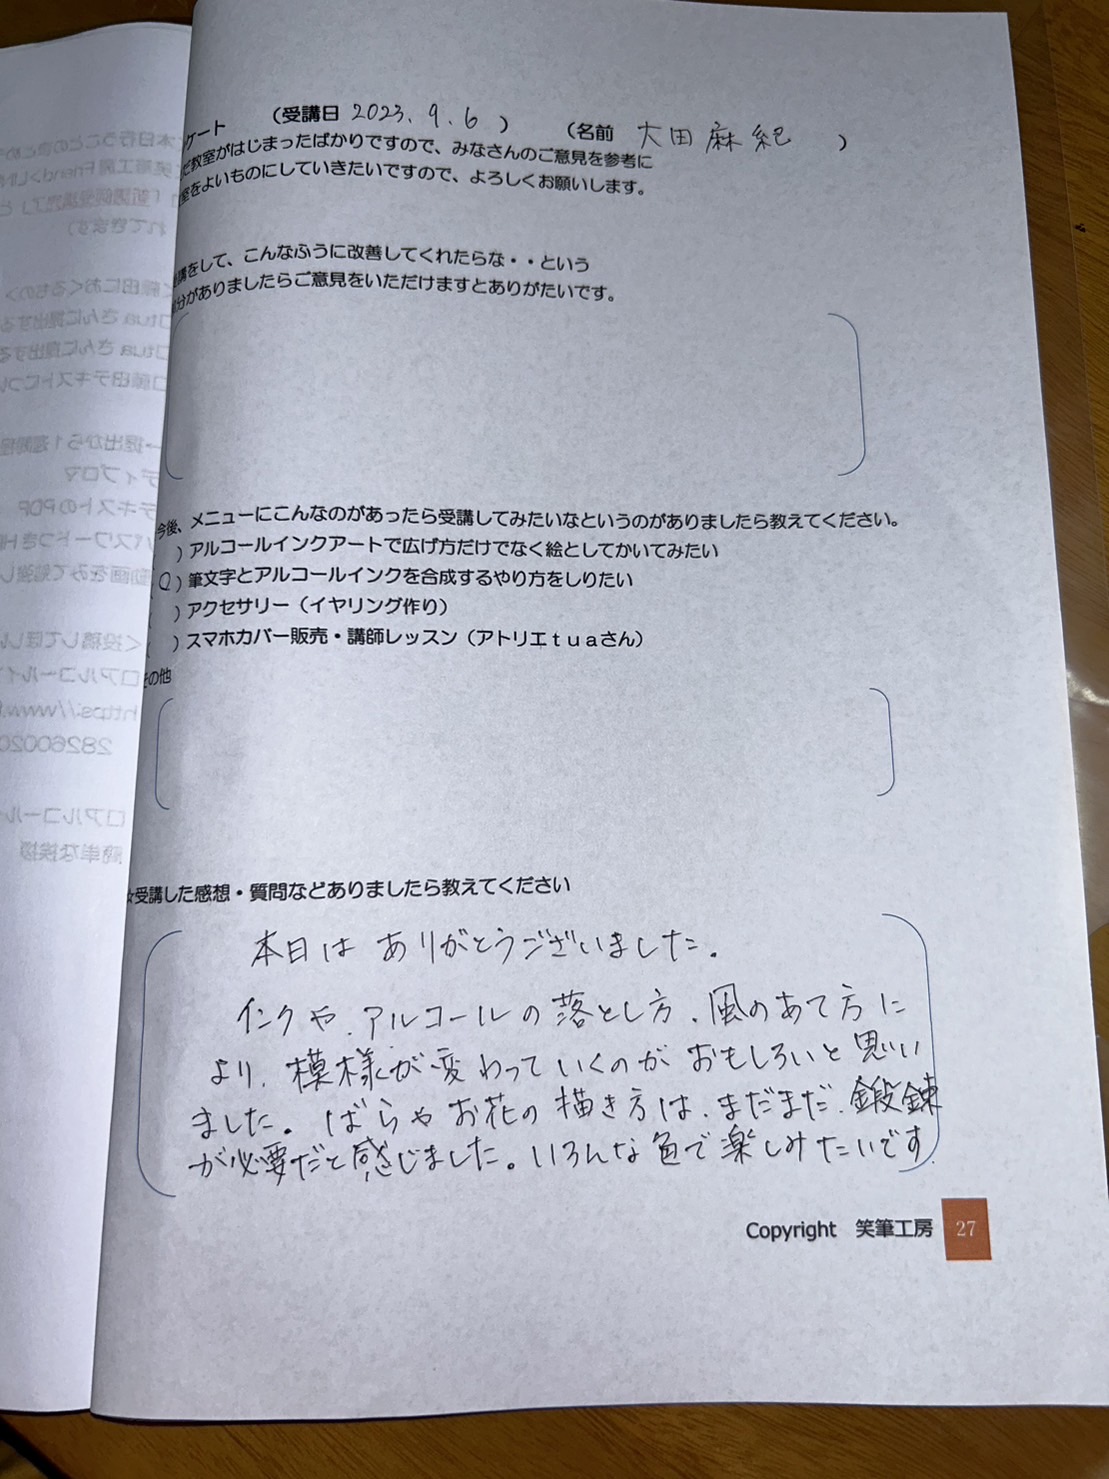 ケート　（受講日 2023. 9. 6 ）　（名前 大田麻紀 ）
だ教室がはじまったばかりですので、みなさんのご意見を参考に
室をよいものにしていきたいですので、よろしくお願いします。
講をして、こんなふうに改善してくれたらな・・という
部分がありましたらご意見をいただけますとありがたいです。
今後、メニューにこんなのがあったら受講してみたいなというのがありましたら教えてください。
）アルコールインクアートで広げ方だけでなく絵としてかいてみたい
（○）筆文字とアルコールインクを合成するやり方をしりたい
）アクセサリー（イヤリング作り）
）スマホカバー販売・講師レッスン（アトリエｔｕａさん）
その他
☆受講した感想・質問などありましたら教えてください
本日は ありがとうございました。
インクや、アルコールの落とし方、風のあて方に
より、模様が変わっていくのが おもしろいと思い
ました。ばらやお花の描き方は、まだまだ、鍛錬
が必要だと感じました。いろんな色で楽しみたいです.
Copyright　笑筆工房　27